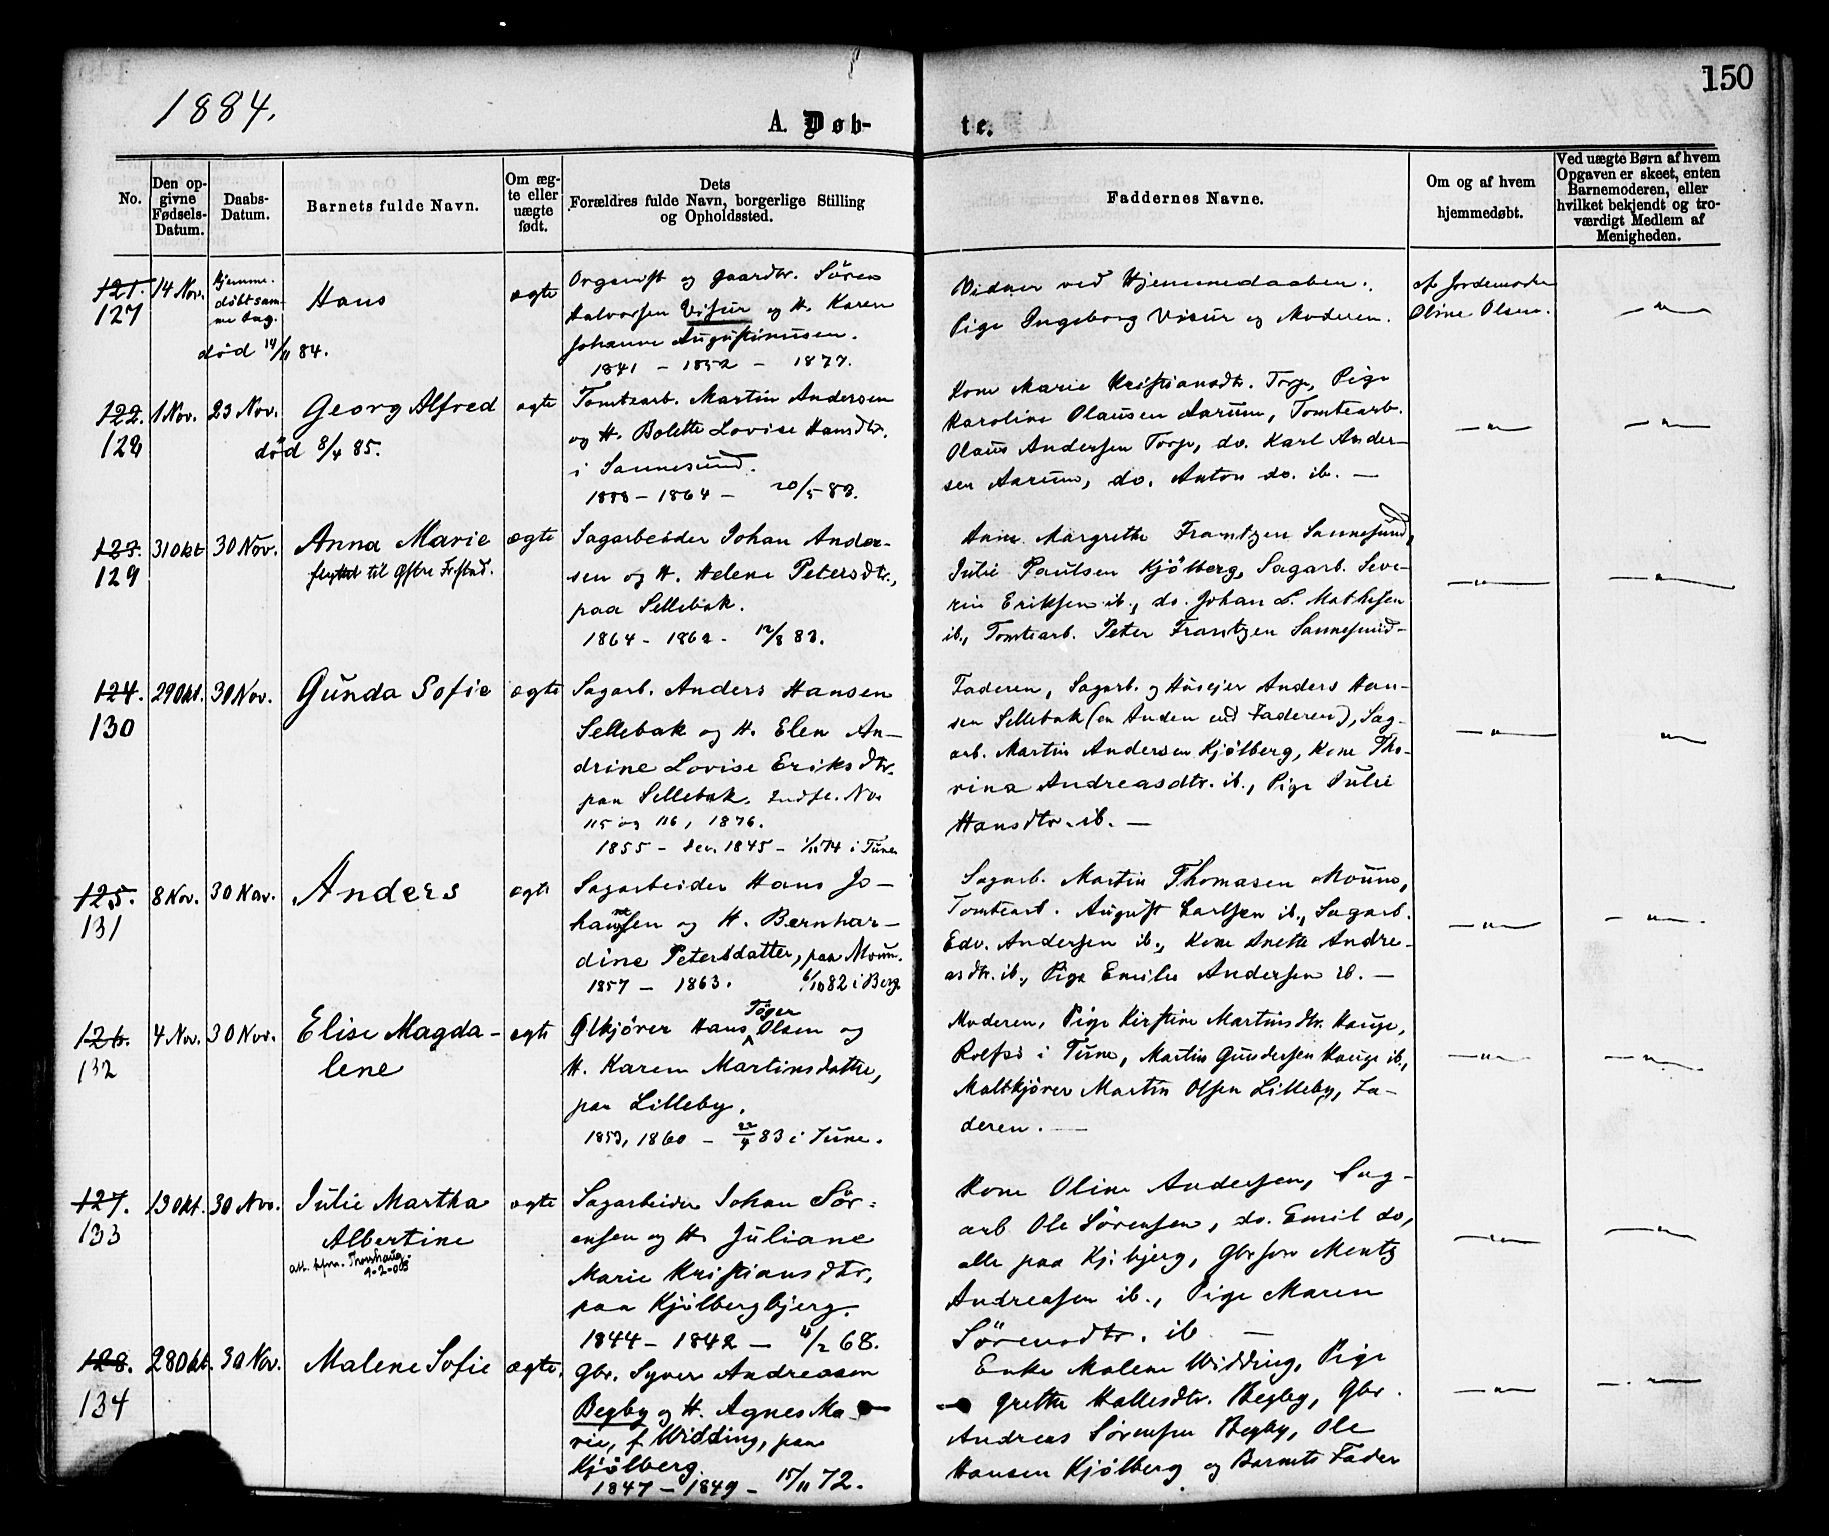 150
1884.
A. Døb-
te.
No.
Den op-
givne
Fødsels-
Datum.
Daabs-
Datum.
Barnets fulde Navn.
Om æg-
te eller
uægte
født.
Dets
Forældres fulde Navn, borgerlige Stilling
og Opholdssted.
Faddernes Navne.
Om og af hvem
hjemmedøbt.
Ved uægte Børn af hvem
Opgaven er skeet, enten
Barnemoderen, eller
hvilket bekjendt og tro-
værdigt Medlem af
Menigheden.
121.
127
14 Nov.
Hjemme-
døbt sam-
me Dag.
Hans
død 14/11 84.
ægte
Organist og Gaardbr. Sören
Halvorsen Visur og H. Karen
Johanne Augustinusen.
1841 – 1852 – 1877.
Vidner ved Hjemmedaaben:
Pige Ingeborg Visur og Moderen.
af Jordemoder
Oline Olsen.
— " —
122.
128
1 Nov.
23 Nov.
Georg Alfred
død 8/4 85.
ægte
Tomtearb. Martin Andersen
og H. Bolette Lovise Hansdtr.
i Sannesund.
– 1864 – 20/5 83.
Kone Marie Kristiansdtr. Torp, Pige
Karoline Olausen Aarum, Tomtearb.
Olaus Andersen Torp, do. Karl Ander-
sen Aarum, do. Anton do. ib. —
— " —
— " —
123.
129
31 Okt
30 Nov.
Anna Marie
flyttet til Østre Frstad.
ægte
Sagarbeider Johan Ander-
sen og H. Helene Petersdtr.,
paa Sellebak.
1864 – 1862 – 12/8 83.
Margrethe Frantzen Sannesund,
Julie Paulsen Kjölberg, Sagarb. Seve-
rin Eriksen ib., do. Johan L. Mathisen
ib., Tomtearb. Peter Frantzen Sannesund–
— " —
— " —
124.
130
29 Okt.
30 Nov.
Gunda Sofie
ægte
Sagarb. Anders Hansen
Sellebak og H. Elen An-
drine Lovise Eriksdtr.
paa Sellebak. Indfl. No.
115 og 116, 1876.
1855 – 1845 – 1/11 74 i Tune
Faderen, Sagarb. og Huseier Anders Han-
sen Sellebak (en Anden end Faderen), Sag-
arb. Martin Andersen Kjölberg, Kone Tho-
rina Andreasdtr. ib., Pige Julie
Hansdtr. ib. —
— " —
— " —
125.
131
8 Nov.
30 Nov.
Anders
ægte
Sagarbeider Hans Jo-
hannesen og H. Bernhar-
dine Petersdatter, paa Moum.
1857 – 1863. 6/10 82 i Berg
Sagarb. Martin Thomasen Moum,
Tomtearb. August Carlsen ib., Sagarb.
Edv. Andersen ib., Kone Anette Andre-
asdtr. ib., Pige Emilie Andersen ib. —
— " —
— " —
126.
132
4 Nov.
30 Nov.
Elise Magda-
lene
ægte
Ølkjører Hans Töger Olsen og
H. Karen Martinsdatter,
paa Lilleby.
1853, 1860 – 22/4 83 i Tune.
Moderen, Pige Kirstine Martinsdtr. Hauge,
Rolfsö i Tune, Martin Gundersen Hauge ib.,
Maltkjører Martin Olsen Lilleby, Fa-
deren. —
— " —
— " —
127.
133
13 Okt.
30 Nov.
Julie Martha
Albertine
att.
ægte
Sagarbeider Johan Sör-
ensen og H. Juliane
Marie Kristiansdtr.
paa Kjölbergbjerg.
1844 – 1842 – 4/2 68.
Kone Oline Andersen, Sag-
arb. Ole Sörensen, do. Emil do,
alle paa Kj.bjerg, Gbrsøn Mentz
Andreasen ib., Pige Maren
Sörensdtr. ib —
— " —
— " —
128.
134
28 Okt.
30 Nov.
Malene Sofie
ægte.
Gbr. Syver Andreasen
Begby og H. Agnes Ma-
rie, f. Widding, paa
Kjölberg.
1847 – 1849 – 15/11 72.
Enke Malene Widding, Pige
Grethe Hallesdtr. Begby, Gbr.
Andreas Sörensen Begby, Ole
Hansen Kjölberg og Barnets Fader
— " —
— " —